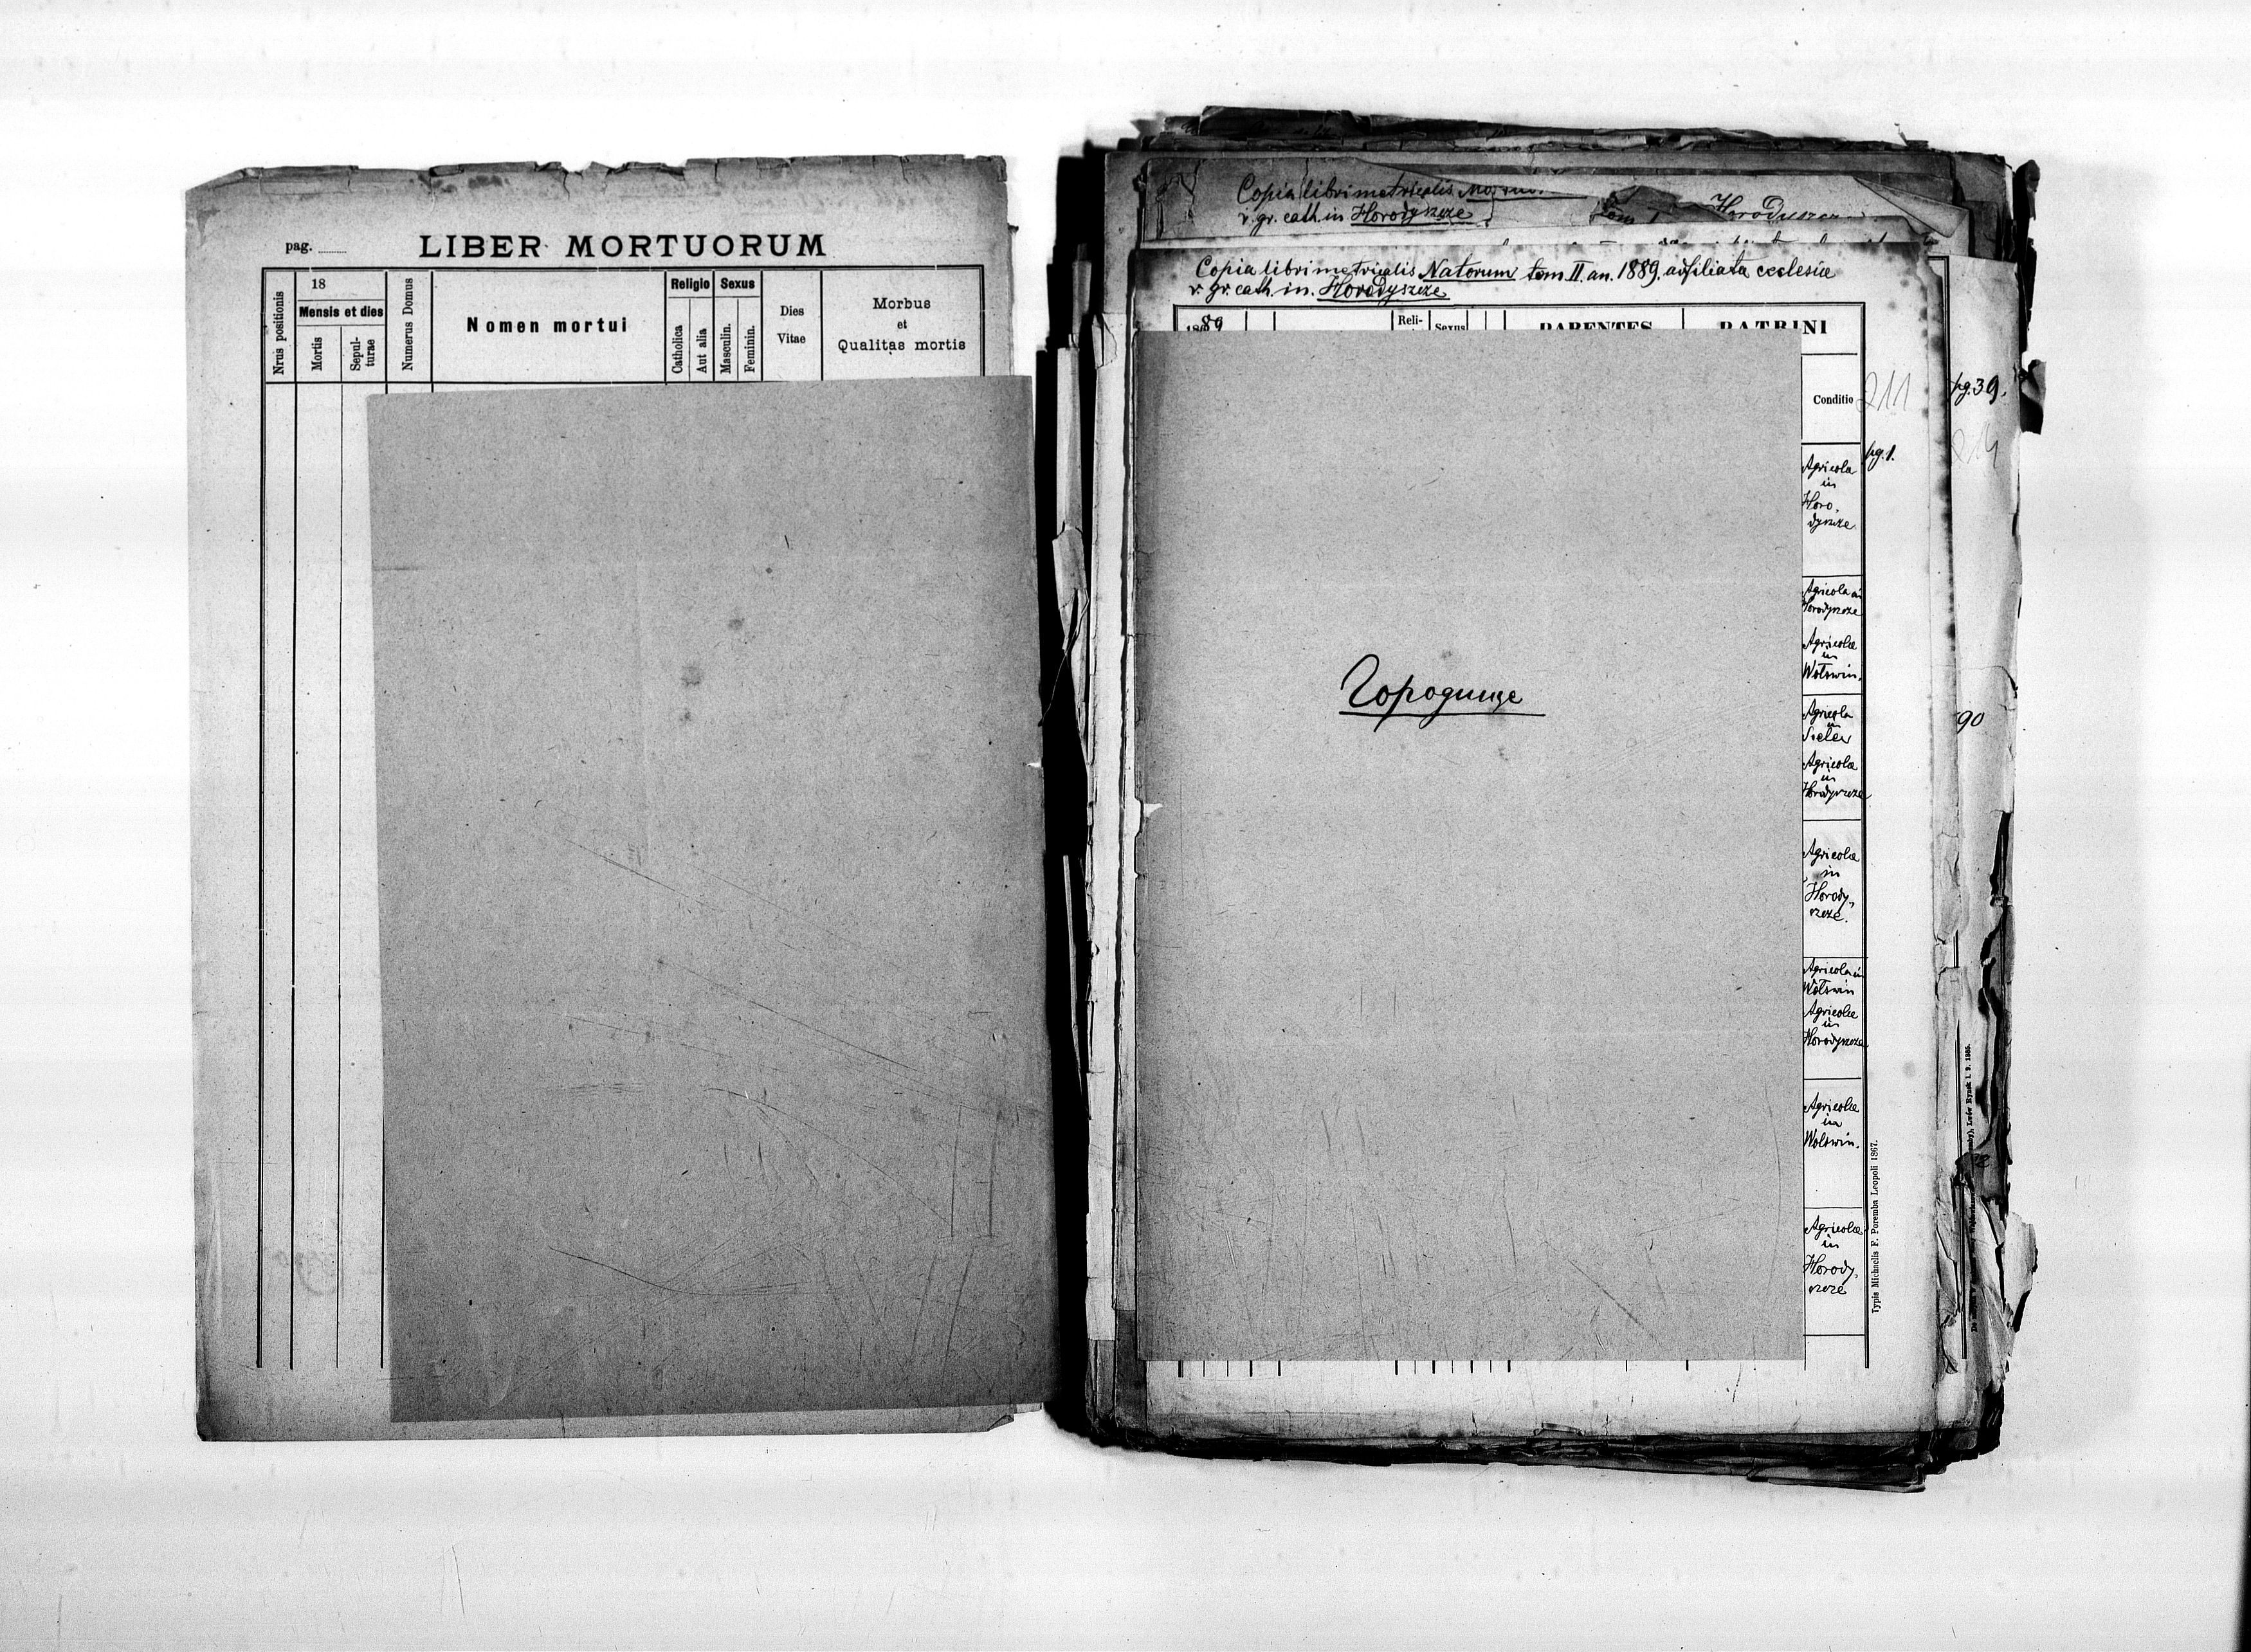 pag.
LIBER MORTUORUM
Nrus positionis
18
Mensis et dies
Mortis
Sepul-
turae
Numerus Domus
Nomen mortui
Religio
Catholica
Aut alia
Sexus
Masculin.
Feminin.
Dies
Vitae
Morbus
et
Qualitas mortis
Copia libri metricalis
r. gr. cath. in Horodyszcze
Copia libri metricalis Natorum tom. II an. 1889. ad filiata ecclesia
r. gr. cath. in. Horodyszcze
1889
Reli-
Sexus
PARENTES
PATRINI
Conditio
211
pg. 39.
pg. 1.
Agricola
in
Horo,
dyszcze
Agricola in
Horodyszcze
Agricola
in
Wolswin.
Agricola
in
Sielec
Agricola
in
Horodyszcze
90
Agricola
in
Horody,
szcze.
Agricola in
Wolswin
Agricola
in
Horodyszcze
Agricola
in
Wolswin.
Agricola
in
Horody,
szcze
Городище
Typis Michaelis F. Poremba Leopoli 1867.
Lwów Rynek l. 9. 1885.